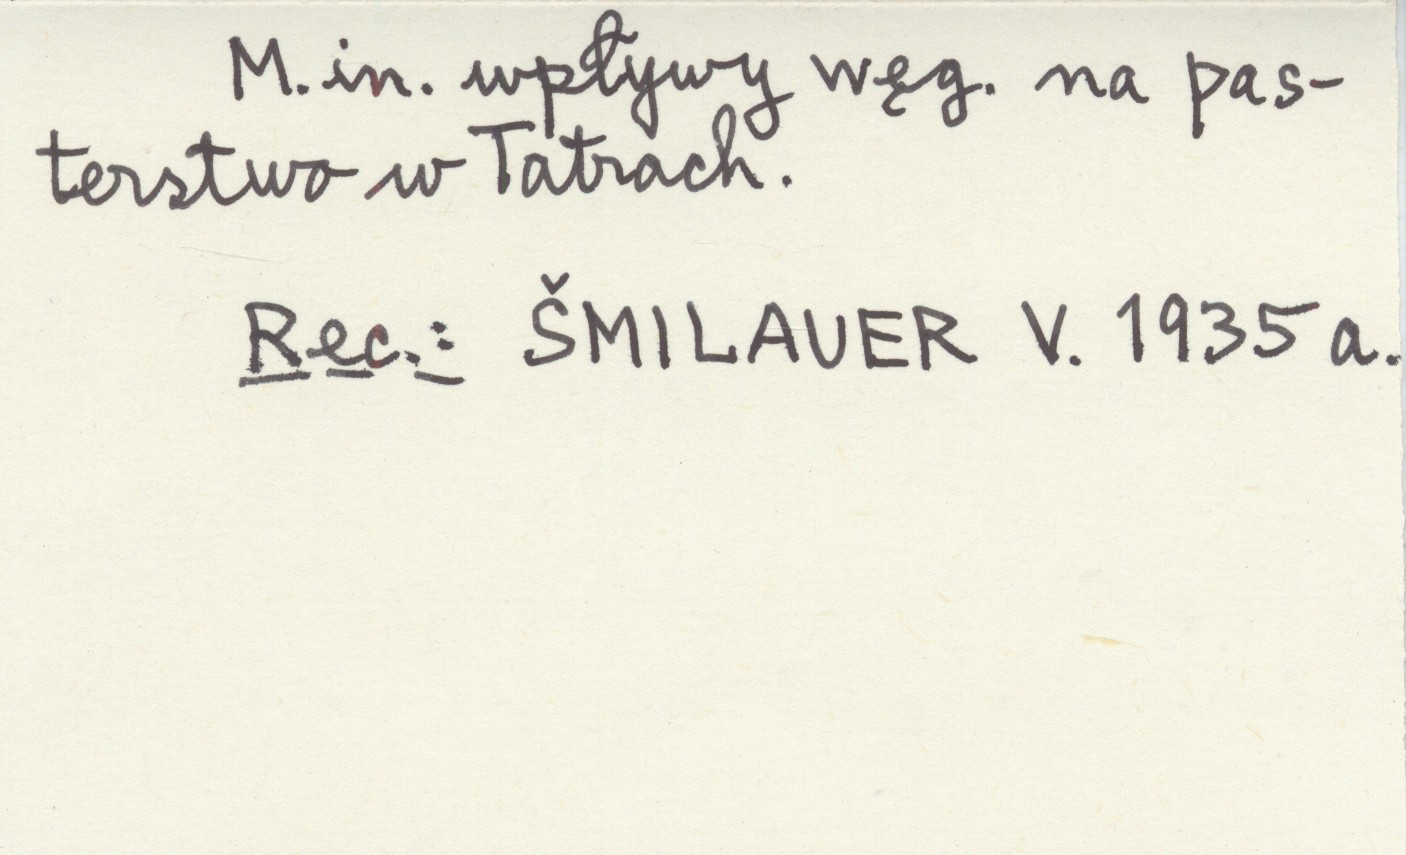 M. in. wpływy węg. na pas-
terstwo w Tatrach.
Rec.: ŠMILAUER V. 1935 a.